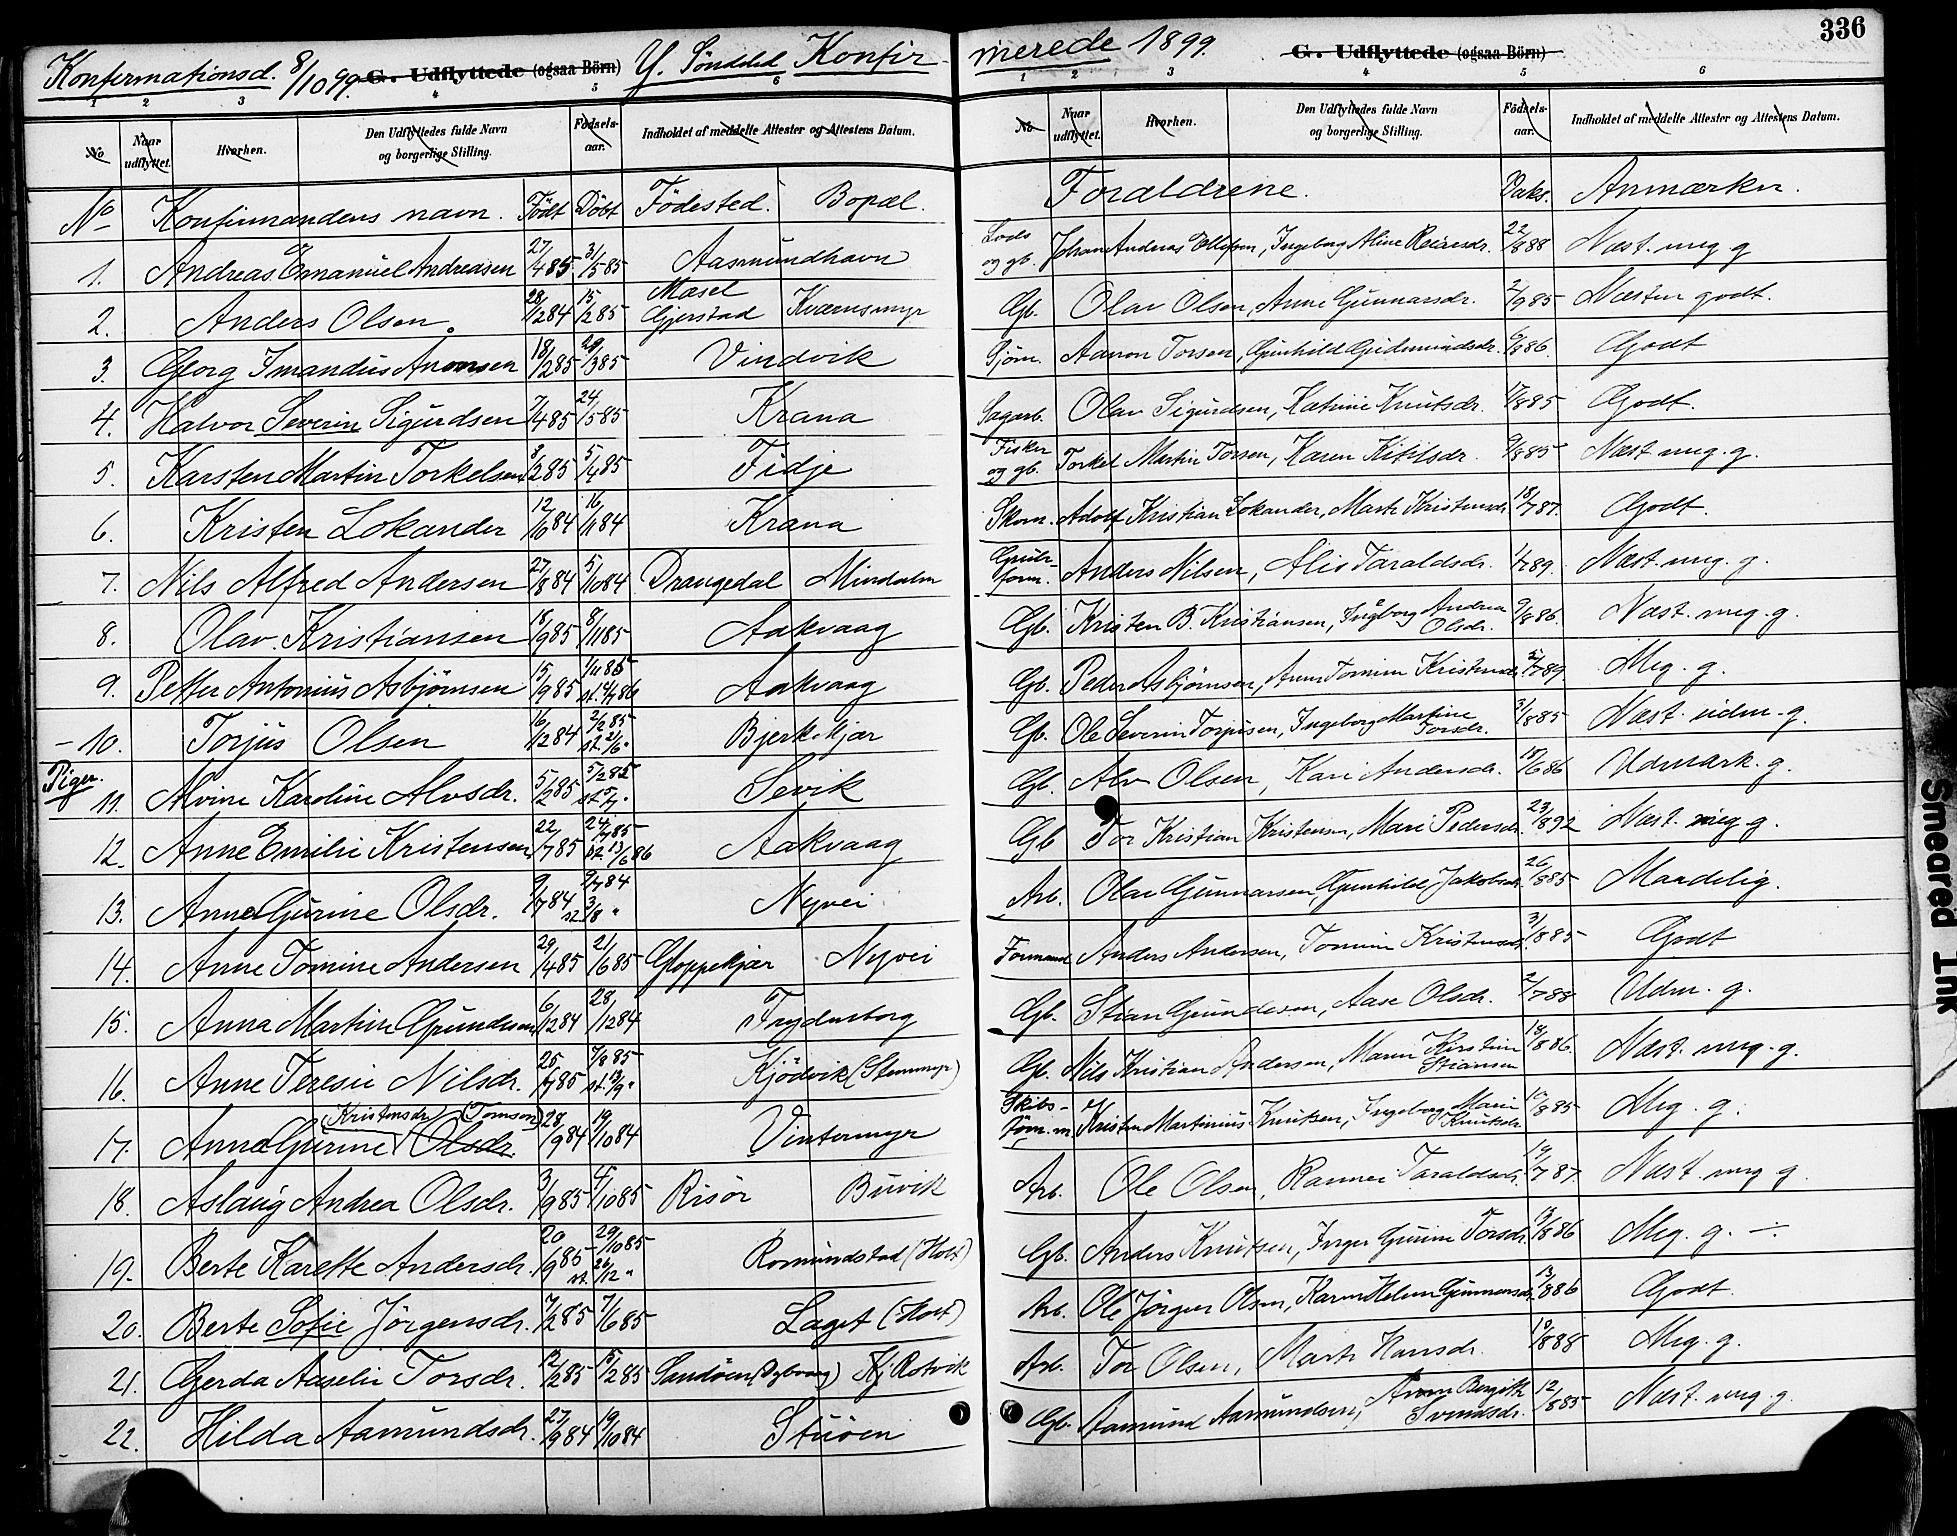 336
Konfirmationsd. 8/10 99. G. Udflyttede (ogsaa Börn) Y. Söndeled Konfir-
merede 1899. G. Udflyttede (ogsaa Börn)
1 2 3 4 5 6
1 2 3 4 5 6
No Naar udflyttet. Hvorhen. Den Udflyttedes fulde Navn og borgerlige Stilling. Fødsels-aar. Indholdet af meddelte Attester og Attestens Datum.
No Naar udflyttet. Hvorhen. Den Udflyttedes fulde Navn og borgerlige Stilling. Fødsels-aar. Indholdet af meddelte Attester og Attestens Datum.
No Konfirmandens navn. Født Döbt Födested. Bopæl. Forældrene. Vaks. Anmærkn.
1. Andreas Emanuel Andreasen 27/4 85 31/5 85 Aasmundhavn Lods og gb. Johan Andreas Ellefsen, Ingeborg Aline Reiersdr. 22/8 88 Næst. meg g
2. Anders Olsen. 28/2 84 15/2 85 Mæsel Gjerstad Kværnsmyr Gb. Olav Olsen, Anne Gunnarsdr. 2/9 85 Næsten godt.
3. Georg Imandus Aronsen 18/2 85 29/3 85 Vindvik Sjöm. Aanon Torsen, Gunhild Gudmundsdr. 6/8 86. Godt
4. Halvor Severin Sigurdsen 7/4 85 24/5 85 Krana Sagarb. Olav Sigurdsen, Katrine Knutsdr. 17/8 85 Godt.
5. Karsten Martin Torkelsen 8/2 85 5/4 85 Fidje Fisker og gb. Torkel Martin Torsen, Karen Kitilsdr. 9/8 85 Næst meg. g.
6. Kristen Lokander 12/10 84 16/11 84 Krana Skom. Adolf Kristian Lokander, Marte Kristensdr. 18/7 87. Godt.
7. Nils Alfred Andersen 27/8 84 5/10 84 Drangedal Mindalen Grube-form. Anders Nilsen, Alis Taraldsdr. 1/7 89. Næst. meg. g.
8. Olav Kristiansen 18/9 85 8/11 85 Aakvaag Gb. Kristen B. Kristiansen, Ingborg Andrea Olsdr. 9/8 86. Næst. meg. g.
9. Petter Antonius Asbjörnsen 15/9 85 1/11 85 Aakvaag Gb. Peder Asbjörnsen, Anne Tomine Kristensdr. 7 89 Meg. g.
10. Torjus Olsen 16/12 84 2/2 85 Bjerkekjær Gb. Ole Severin Torjusen, Ingeborg Martine Torsdr. 31/8 85 Næst. udm. g.
Piger.
11. Alvine Karoline Alvsdr. 5/2 85 5/2 85 Sevik Gb. Alv Olsen, Kari Andersdr. 6 86 Udmærk. g.
12. Anne Emilie Kristensen 22/7 85 24/7 85 st. 13/6 86 Aakvaag Gb Tor Kristian Kristensen, Mari Pedersdr. 23/8 92 Næst. meg g.
13. Anne Gurine Olsdr. 9/7 84 9/7 84 st. 3/8 " Nyvei Arb. Olav Gunnarsen, Gunhild Jakobsdr. 26/8 85 Maadelig.
14. Anne Tomine Andersen 29/4 85 21/6 85 Gloppekjær Nyvei Formand Anders Andersen, Tomine Kristensdr. 3/8 85 Godt
15. Anna Martine Gundersen 6/12 84 28/12 84 Frydensborg Gb. Stian Gundersen, Aase Olsdr. 2/7 88 Udm. g.
16. Anne Teresie Nilsdr. 25/7 85 7/8 85 st. 13/9 " Kjödvik (Stemmyr) Gb. Nils Kristian Andersen, Maren Kirstine Stiansen 18/8 86. Næst. meg. g.
17. Anne Gurine Olsdr. (Kristensdr) (Tomsen) 28/9 84 19/10 84 Vintermyr Skibs-töm.m. Kristen Martinius Knutsen, Ingeborg Marie Knutsdr. 10/8 85 Meg. g.
18. Aslaug Andrea Olsdr. 3/9 85 4/10 85 Risör Buvik Arb. Ole Olsen, Rannei Taraldsdr. 19/7 87. Næst. meg g.
19. Berte Karette Andersdr. 20/9 85 29/10 85 st. 26/12 " Romundstad (Holt) Gb. Anders Knutsen, Inger Gurine Torsdr. 13/8 86 Meg. g. -.
20. Berte Sofie Jörgensdr. 7/2 85 7/6 85 Laget (Holt) Arb. Ole Jörgen Olsen, Karen Helene Gunnarsdr. 13/8 86 Godt.
21. Gerda Aaselie Torsdr. 12/2 85 15/2 85 Sandöen (Dybvaag) Kj. Rotvik Arb. Tor Olsen, Marte Hansdr. 10/8 88 Meg. g.
22. Hilda Aamundsdr. 27/9 84 19/10 84 Stuöen Gb. Aamund Aamundsen, Anne Bergitte Svendsdr. 12/8 85 Næst. meg. g.
Smeared Ink